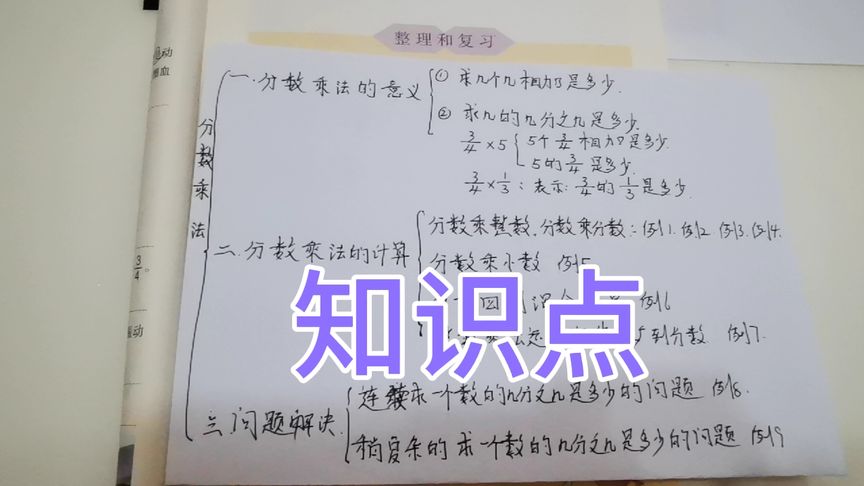 整理和复习
动
细血
分数乘法
一.分数乘法的意义
① 求几个几相加是多少.
② 求几的几分之几是多少.
3/4×5
5个3/4相加是多少.
5的3/4是多少.
3/4×1/3:表示:3/4的1/3是多少.
二.分数乘法的计算
分数乘整数.分数乘分数:例1.例2.例3.例4.
分数乘小数 例5
例6
到分数 例7.
知识点
3/4。
动
三.问题解决.
连续求一个数的几分之几是多少的问题 例8.
稍复杂的求一个数的几分之几是多少的问题 例9